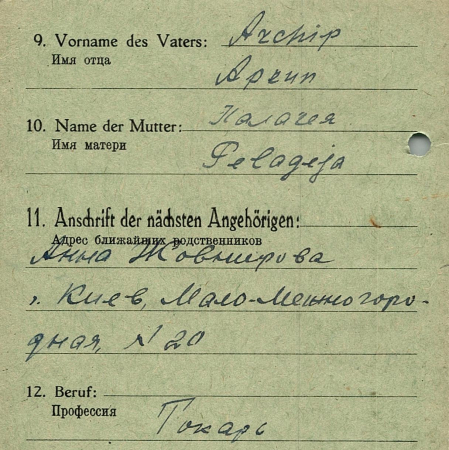 9. Vorname des Vaters: Archip
Имя отца
Архип
10. Name der Mutter: Палагея
Имя матери
Pelageja
11. Anschrift der nächsten Angehörigen:
Адрес ближайших родственников
Анна
г. Киев, Мало-
дная, N 20
12. Beruf:
Профессия
Токарь